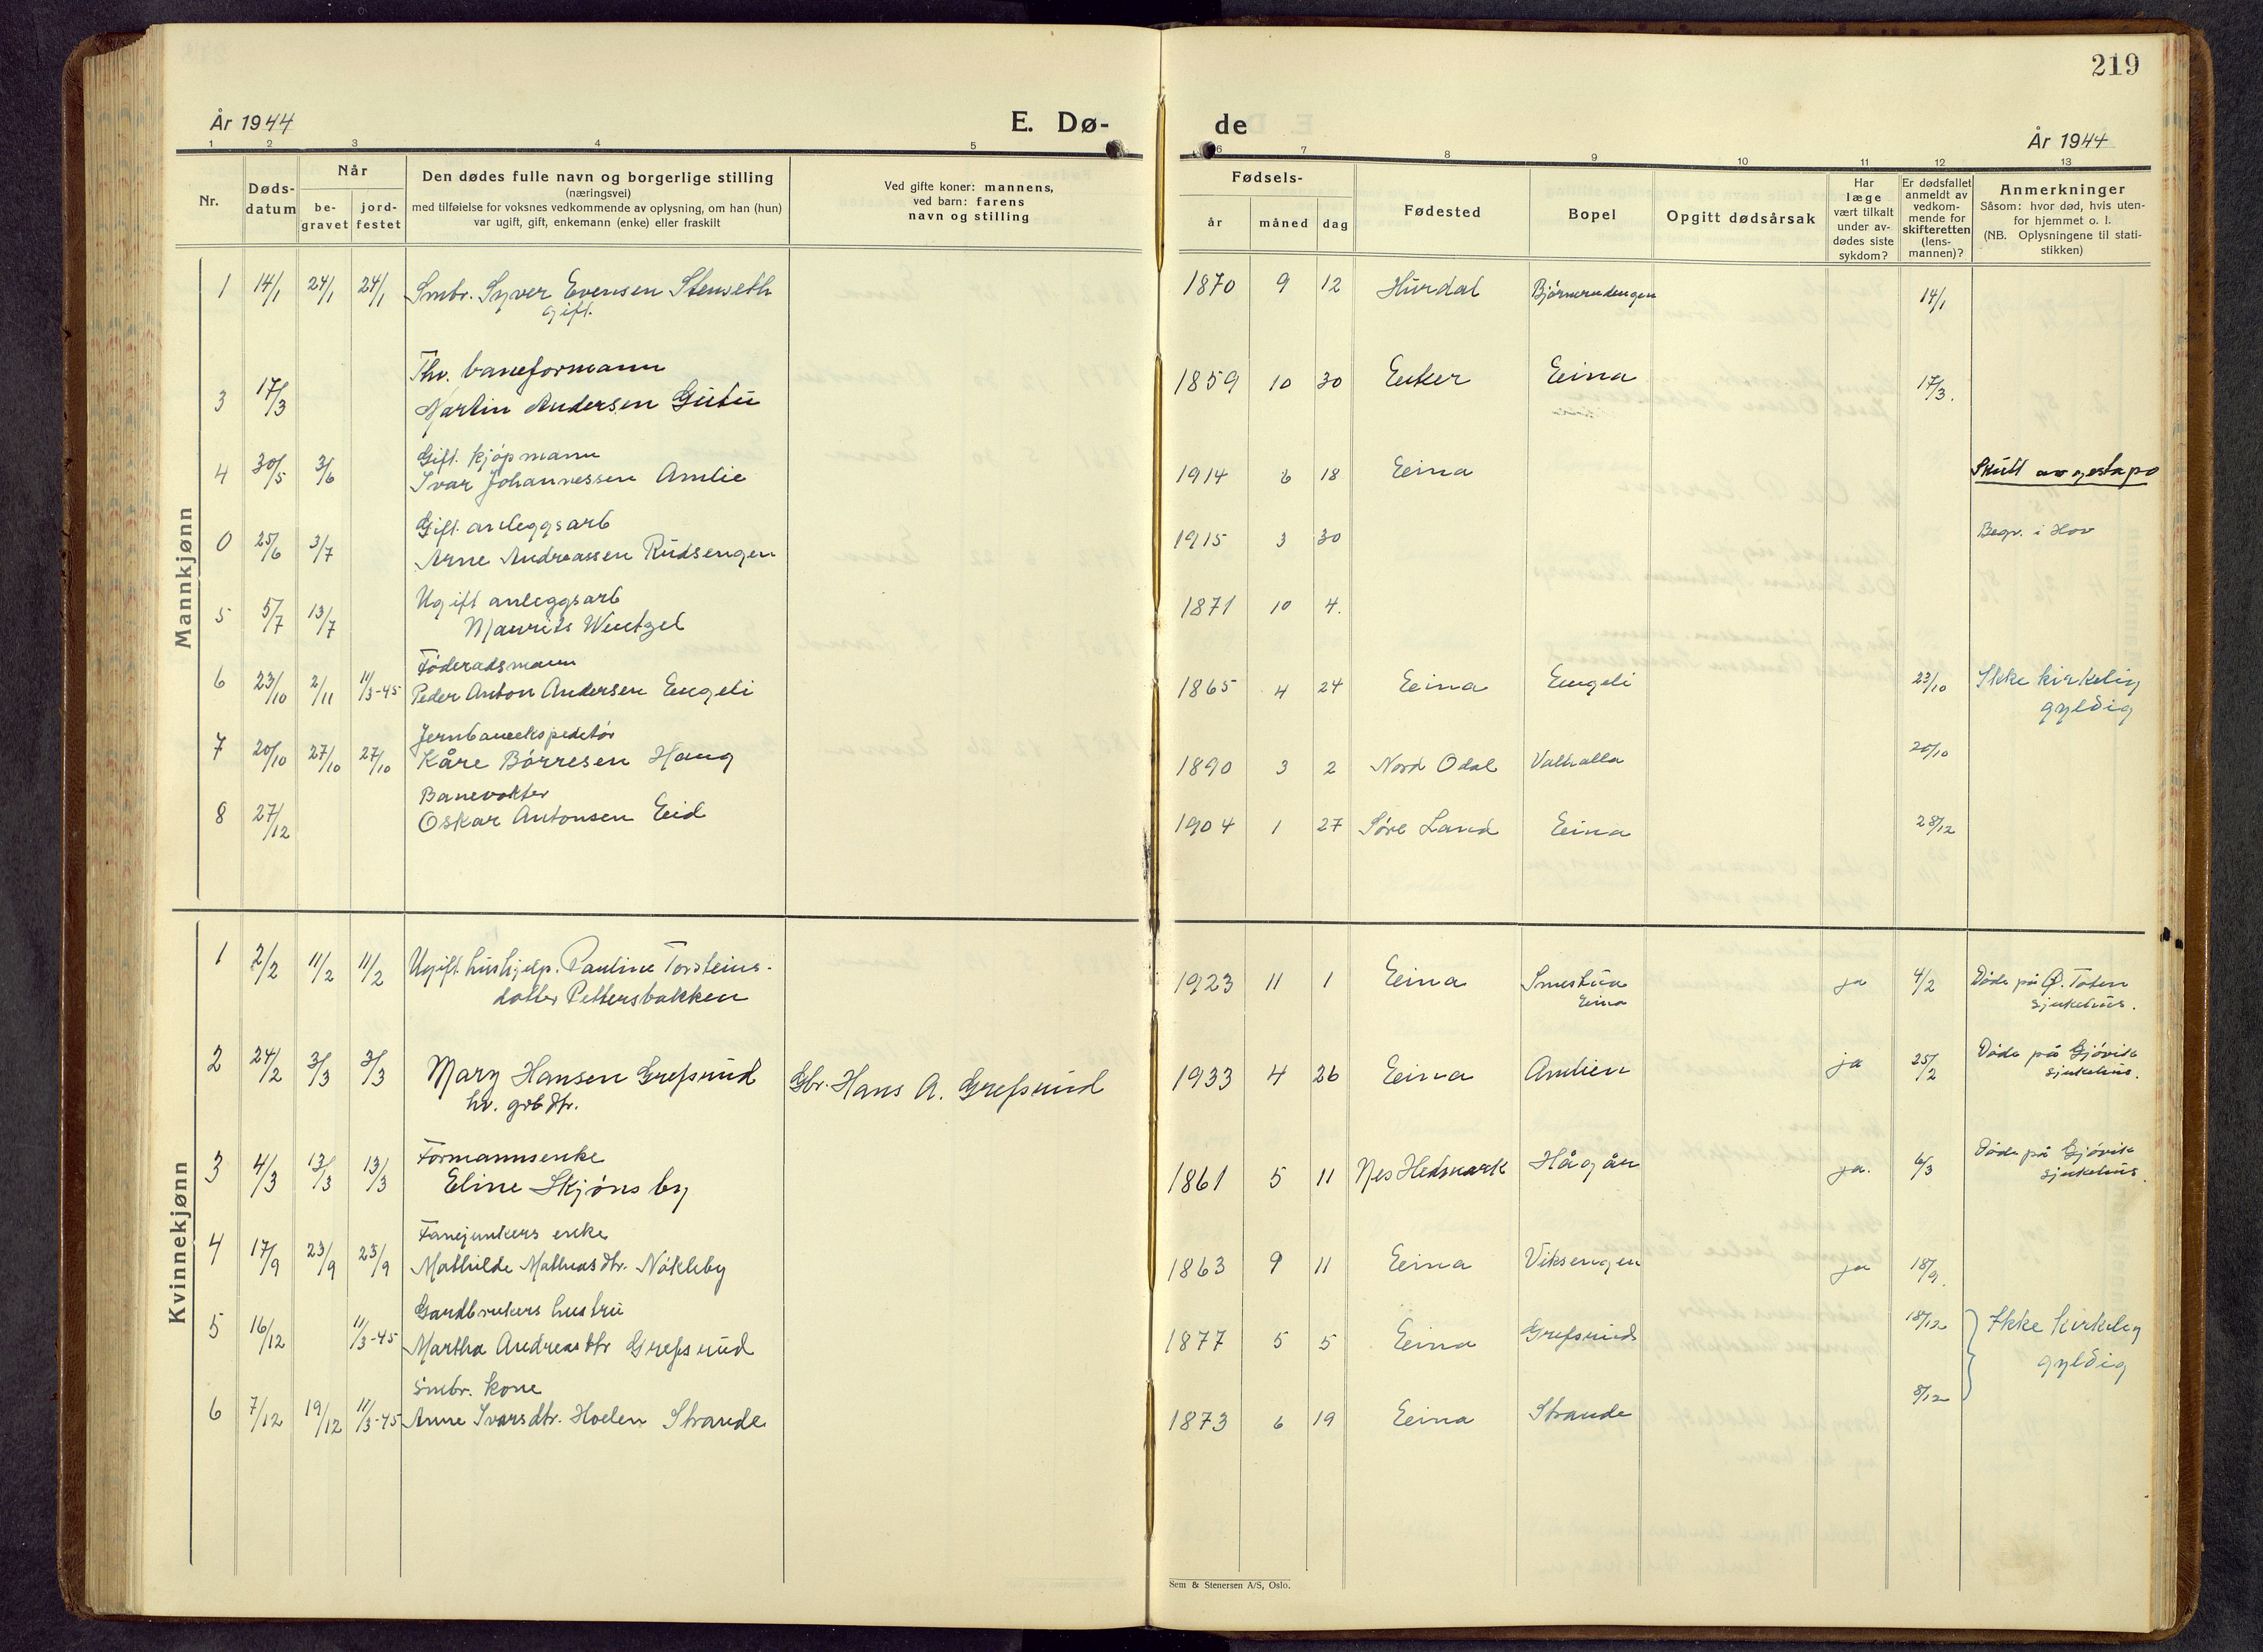 219
År 1944
E. Dø-
de
År 1944
1 2 3 4 5 6 7 8 9 10 11 12 13
Nr.
Døds-
datum
Når
be-
gravet
jord-
festet
Den dødes fulle navn og borgerlige stilling
(næringsvei)
med tilføielse for voksnes vedkommende av oplysning, om han (hun)
var ugift, gift, enkemann (enke) eller fraskilt
Ved gifte koner: mannens,
ved barn: farens
navn og stilling
Fødsels-
år måned dag
Fødested
Bopel
Opgitt dødsårsak
Har
læge
vært tilkalt
under av-
dødes siste
sykdom?
Er dødsfallet
anmeldt av
vedkom-
mende for
skifteretten
(lens-
mannen)?
Anmerkninger
Såsom: hvor død, hvis uten-
for hjemmet o. l.
(NB. Oplysningene til stati-
stikken)
Mannkjønn
1 14/1 24/1 24/1 Smbr. Syver Evensen Stenseth 1870 9 12 Hurdal Bjørnerudengen 14/1
gift.
Thv. baneformann
3 17/3 Martin Andersen Gutu 1859 10 30 Enker Eina 17/3.
Gift. kjøpmann
4 30/5 3/6 Ivar Johannessen Amlie 1914 6 18 Eina Skutt av gestapo
Gift. anleggsarb
0 25/6 3/7 Arne Andreassen Rudsengen 1915 3 30 Begr. i Hov
Ugift anleggsarb
5 5/7 13/7 Maurits Wentzel 1871 10 4.
Føderadsmann
6 23/10 2/11 11/3-45 Peder Anton Andersen Engeli 1865 4 24 Eina Engeli 23/10 Ikke kirkelig
gyldig
Jernbaneekspeditør
7 20/10 27/10 27/10 Kåre Børresen Haug 1890 3 2 Nord Odal Valhalla 20/10
Banevokter
8 27/12 Oskar Antonsen Eid 1904 1 27 Søre Land Eina 28/12
Kvinnekjønn
1 2/2 11/2 11/2 Ugift hushjelp. Pauline Torsteins- 1923 11 1 Eina Smestua ja 4/2 Døde på Ø. Toten
dotter Pettersbakken Eina sjukehus.
2 24/2 3/3 3/3 Mary Hansen Grefsrud Gbr. Hans A. Grefsrud 1933 4 26 Eina Amlien ja 25/2 Døde på Gjøvik
hv. grbdtr. sjukehus.
Formannsenke
3 4/3 13/3 13/3 Eline Skjønsby 1861 5 11 Nes Hedmark Hågår ja. 6/3 Døde på Gjøvik
sjukehus.
Fanejunkers enke
4 17/9 23/9 23/9 Mathilde Mathiasdtr. Nøkleby 1863 9 11 Eina Viksengen ja 18/9.
Gardbrukers hustru
5 16/12 11/3-45 Martha Andreasdtr Grefsrud 1877 5 5 Eina Grefsrud 18/12 Ikke kirkelig
gyldig
Smbr. kone
6 7/12 19/12 11/3-45 Anne Ivarsdtr. Hoelen Strande 1873 6 19 Eina Strande 8/12
Sem & Stenersen A/S, Oslo.